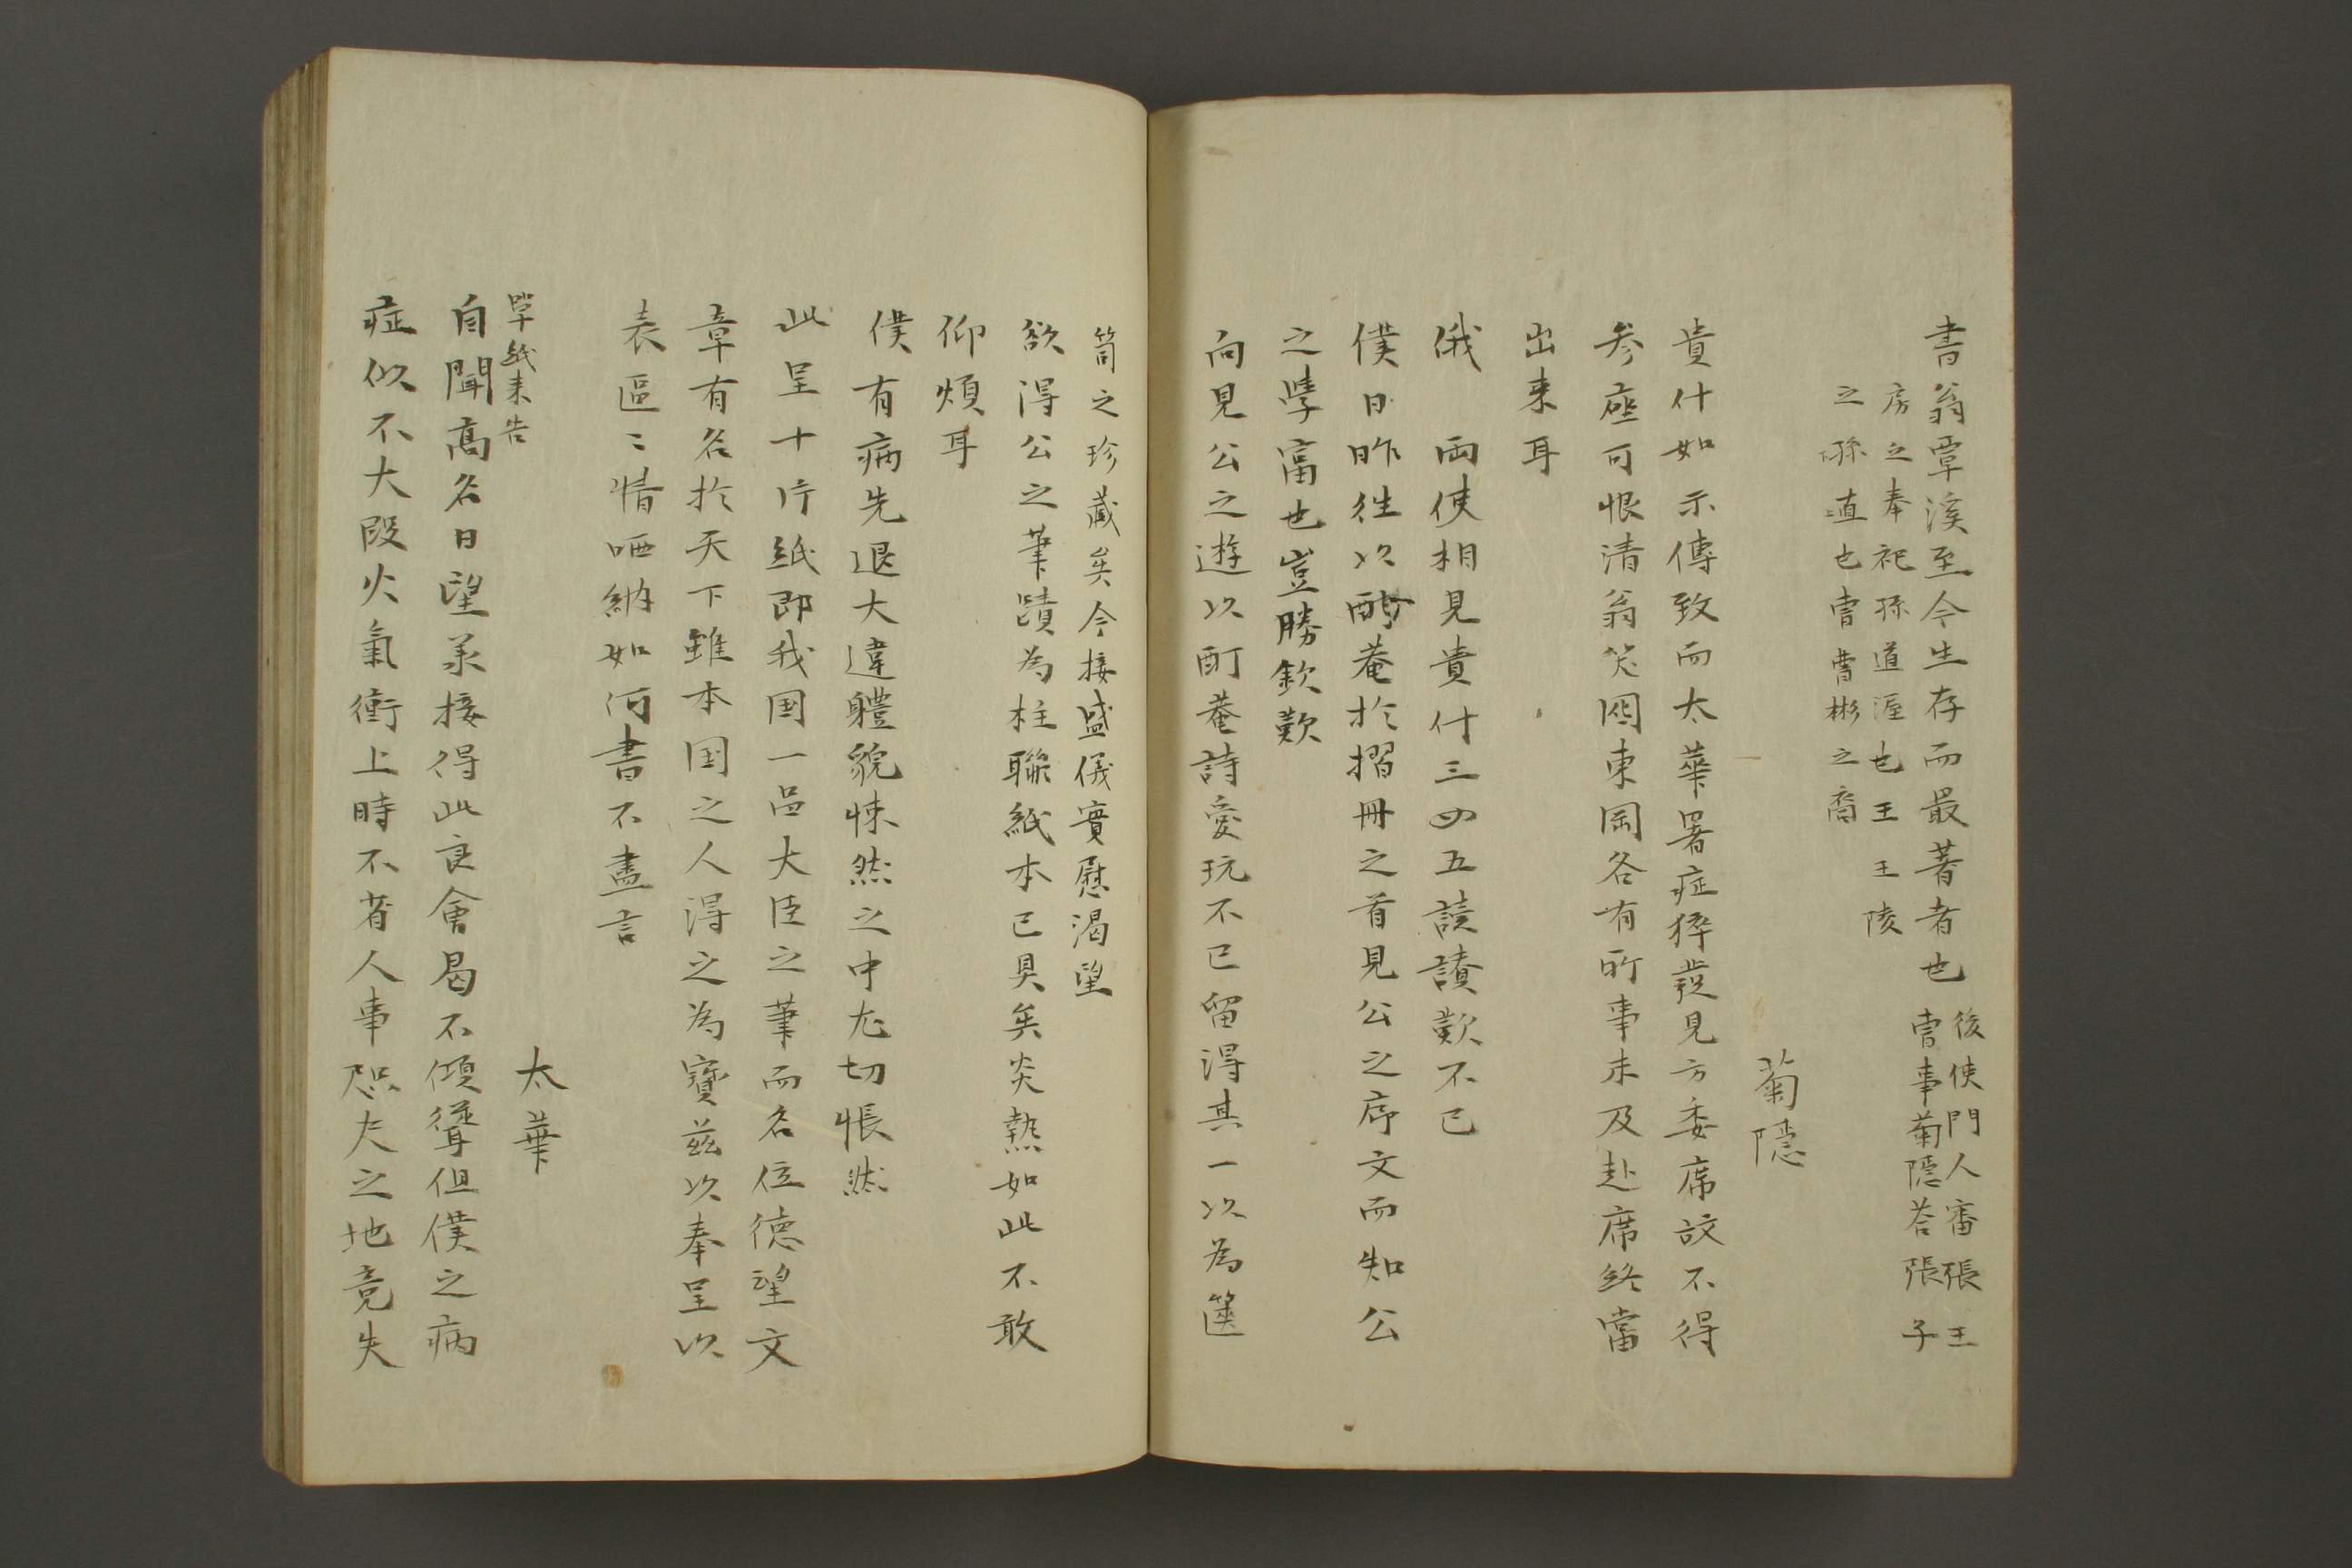 書翁覃溪至今生存而最著者也
後使門人審張王
曺事菊隱荅張子
房之奉祀孫道渥也王王陵
之孫直也曺曺彬之裔
菊隱
貴什如示傳致而太華署症猝發見方委席故不得
参座可恨清翁笑岡東岡各有所事未及赴席終當
出来耳
俄 両使相見貴什三四五讀讀歎不已
僕日昨往以酊菴於摺冊之首見公之序文而知公
之學富也豈勝欽歎
向見公之遊以酊菴詩愛玩不已留得其一以為篋
笥之珍藏矣今接盛儀實慰渴望
欲得公之筆蹟為柱聯紙本已具矣炎熱如此不敢
仰煩耳
僕有病先退大違軆貌悚然之中尤切悵然
此呈十片紙即我国一品大臣之筆而名位德望文
章有名於天下雖本国之人得之為寶茲以奉呈以
表區〻情哂納如何書不盡言
太華
単紙来告
自聞高名日望承接得此良會曷不傾聳但僕之病
症似不大段火氣衝上時不省人事恐大之地竟失